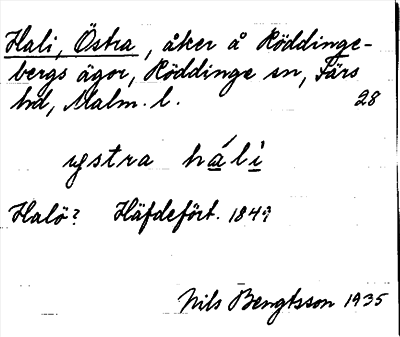 Hali, Östra, åker å Röddinge-
bergs ägor, Röddinge sn, Färs
hd, Malm. l. 28
ystra háli
Halö? Häfdeført. 1849
Nils Bengtsson 1935